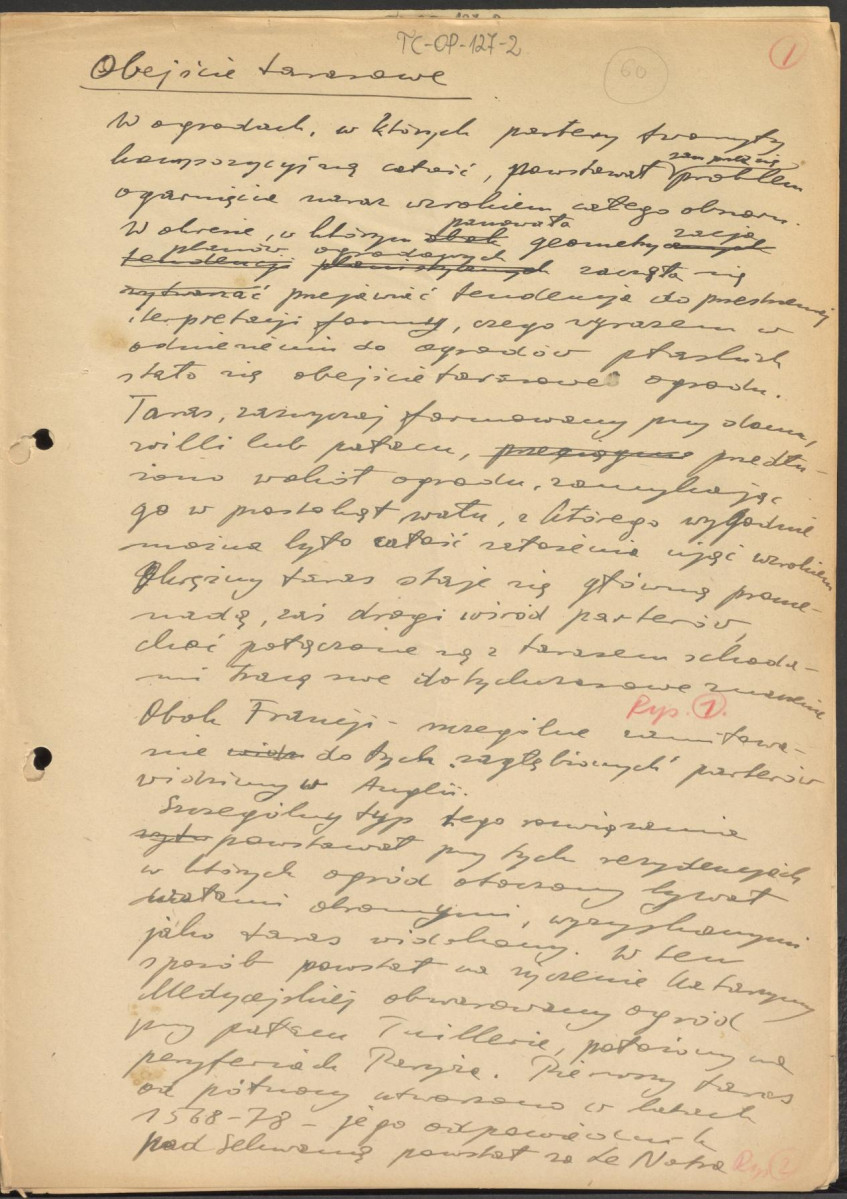 TC-OP-127-2
60
1
Obejście tarasowe
W ogrodach, w których partery tworzyły
kompozycyjną całość, powstawał problem
ogarnięcia naraz wzrokiem całego obszaru.
W okresie, w którym panowała geometryzacja
planów ogrodowych zaczęła się
wytwarzać przejawiać tendencja do przestrzennej
iterpretacji formy, czego wyrazem w
odniesieniu do ogrodów płaskich
stało się obejście tarasowe ogrodu.
Taras, zazwyczaj formowany przy domu,
willi lub pałacu, przedłu-
żono wokół ogrodu, zamykając
go w prostokąt wału, z którego wygodnie
można było całość założenia ująć wzrokiem
Okrężny taras staje się główną prome-
nadą, zaś drogi wśród parterów,
choć połączone są z tarasem schoda-
mi tracą swe dotychczasowe znaczenie
Rys. 1.
Obok Francji - szczególne zamiłowa-
nie do tych "zagłębionych" parterów
widzimy w Anglii.
Szczególny typ tego rozwiązania
powstawał przy tych rezydencjach
w których ogród otoczony bywał
wałami obronnymi, wyzyskanymi
jako taras widokowy. W ten
sposób powstał na życzenie Katarzyny
Medycejskiej obwarowany ogród
przy pałacu Tuillerie, położony na
peryferiach Paryża. Pierwszy taras
od północy utworzono w latach
1568-78 - jego odpowiednik
nad Sekwaną powstał za Le Notra Rys 2